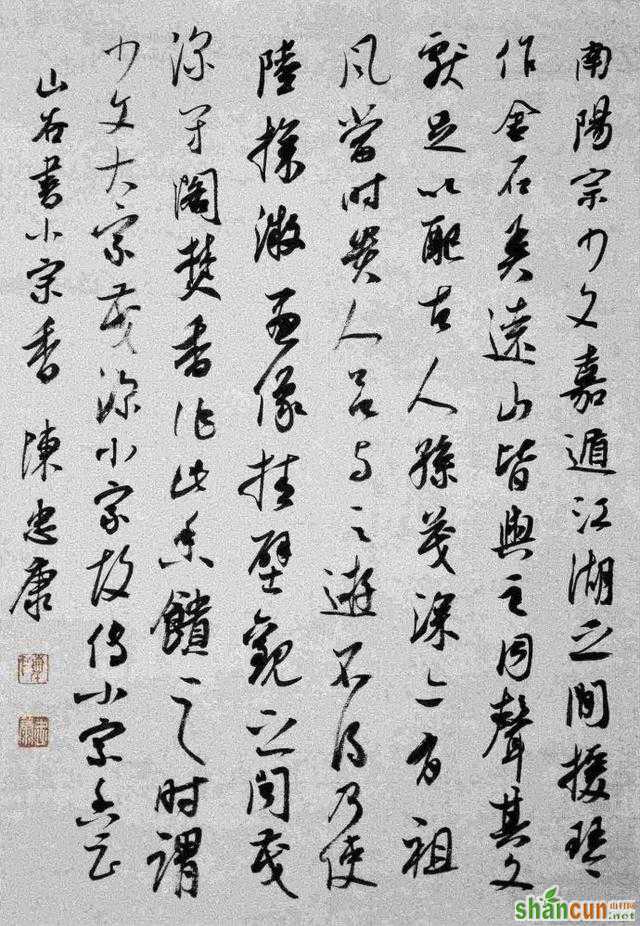 南陽宗少文嘉遁江湖之間援琴
作金石弄遠山皆與之同聲其文
獻足以配古人孫茂深亦有祖
風當时貴人欲与之遊不得乃使
陸探微畫像挂壁觀之聞茂
深閉閣焚香作此香饋之时謂
少文大宗茂深小宗故傳小宗香云
山谷書小宗香 陳忠康
shancun.net
山村网